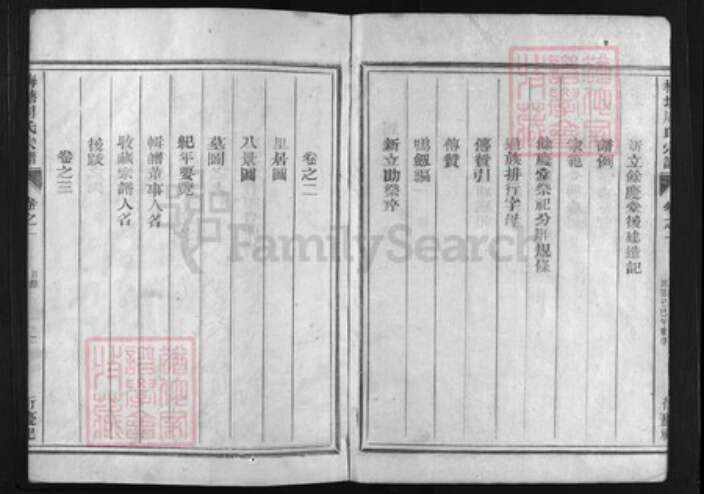 新立餘慶堂後建造記
譜例
家範
餘慶堂祭祀分胙規條
通族排行字母
傳贊引
傳贊
新立助祭序
卷之二
里居圖
八景圖
墓圖
紀年要覽
輯譜董事人名
收藏宗譜人名
後跋
卷之三
梅塘周氏宗譜
卷之一
目錄
行慶祀
FamilySearch